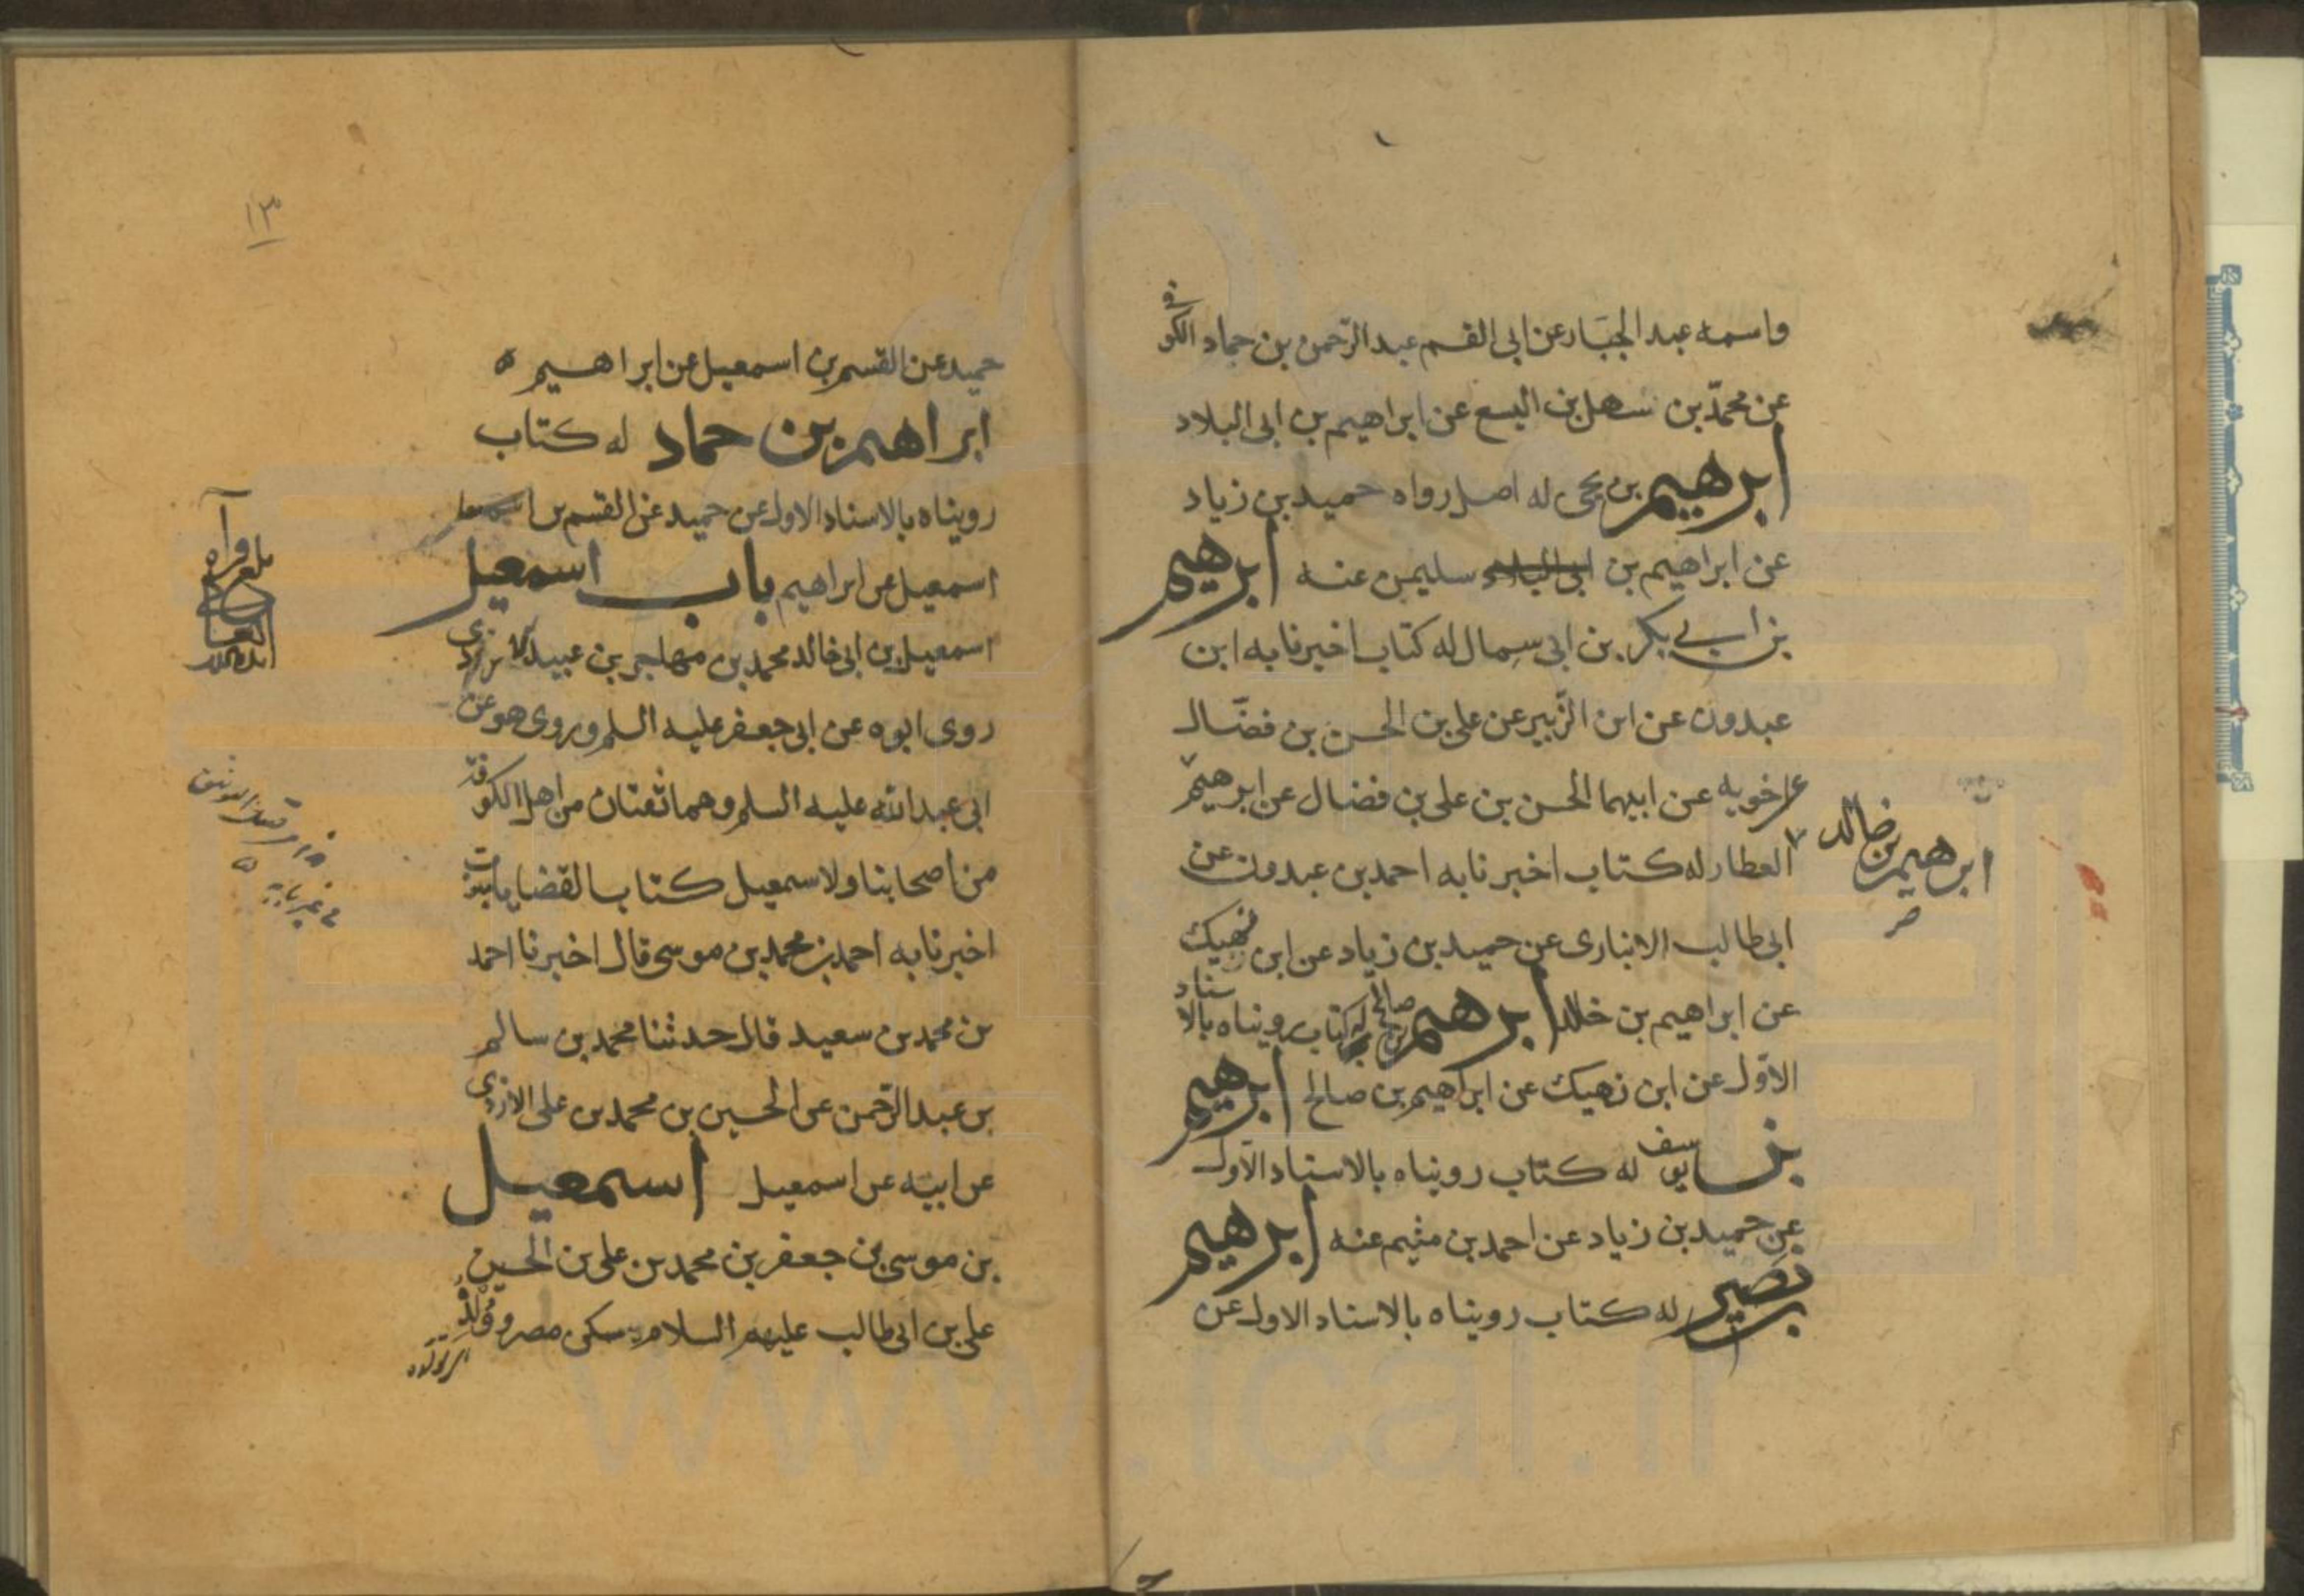 واسمه عبد الجبّار عن ابى القسم عبد الرّحمن بن حماد الكوفى
عن محمّد بن سهل بن اليسع عن ابراهيم بن ابى البلاد
ابرهيم بن يحيى له اصل رواه حميد بن زياد
عن ابراهيم بن ابى البلاد سليمن عنه ابرهيم
بن ابى بكر بن ابى سمال له كتاب اخبرنا به ابن
عبدون عن ابن الزّبير عن على بن الحسن بن فضّال
عن اخويه عن ابيهما الحسن بن على بن فضال عن ابرهيم
ابرهيم بن خالد
صح
العطار له كتاب اخبرنا به احمد بن عبدون عن
ابى طالب الانبارى عن حميد بن زياد عن ابن نهيك
عن ابراهيم بن خالد ابرهيم بن صالح له كتاب رويناه بالاسناد
الاوّل عن ابن نهيك عن ابراهيم بن صالح ابرهيم
بن يوسف له كتاب رويناه بالاسناد الاول
عن حميد بن زياد عن احمد بن ميثم عنه ابرهيم
بن نصير له كتاب رويناه بالاسناد الاول عن
١٣
حميد عن القسم بن اسمعيل عن ابراهيم ه
ابراهيم بن حماد له كتاب
رويناه بالاسناد الاول عن حميد عن القسم بن اسمعيل
اسمعيل عن ابراهيم باب اسمعيل
اسمعيل بن ابى خالد محمد بن مهاجر بن عبيد الازدى
روى ابوه عن ابى جعفر عليه السلم وروى هو عن
ابى عبد الله عليه السلم وهما ثقتان من اهل الكوفة
من اصحابنا ولاسمعيل كتاب القضايا مبوب
اخبرنا به احمد بن محمد بن موسى قال اخبرنا احمد
بن محمد بن سعيد قال حدثنا محمد بن سالم
بن عبد الرّحمن عن الحسين بن محمد بن على الازدى
عن ابيه عن اسمعيل اسمعيل
بن موسى بن جعفر بن محمد بن على بن الحسين
على بن ابى طالب عليهم السلام سكن مصر وولده